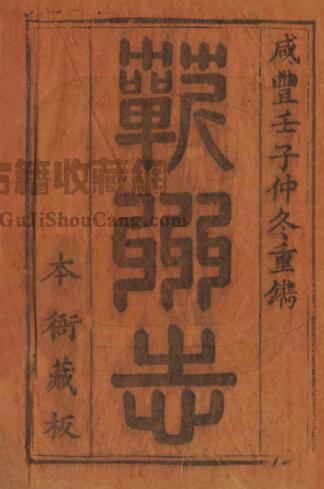 咸豐壬子仲冬重鐫
蘄州志
本衙藏板
古籍收藏網
GuJiShouCang.com